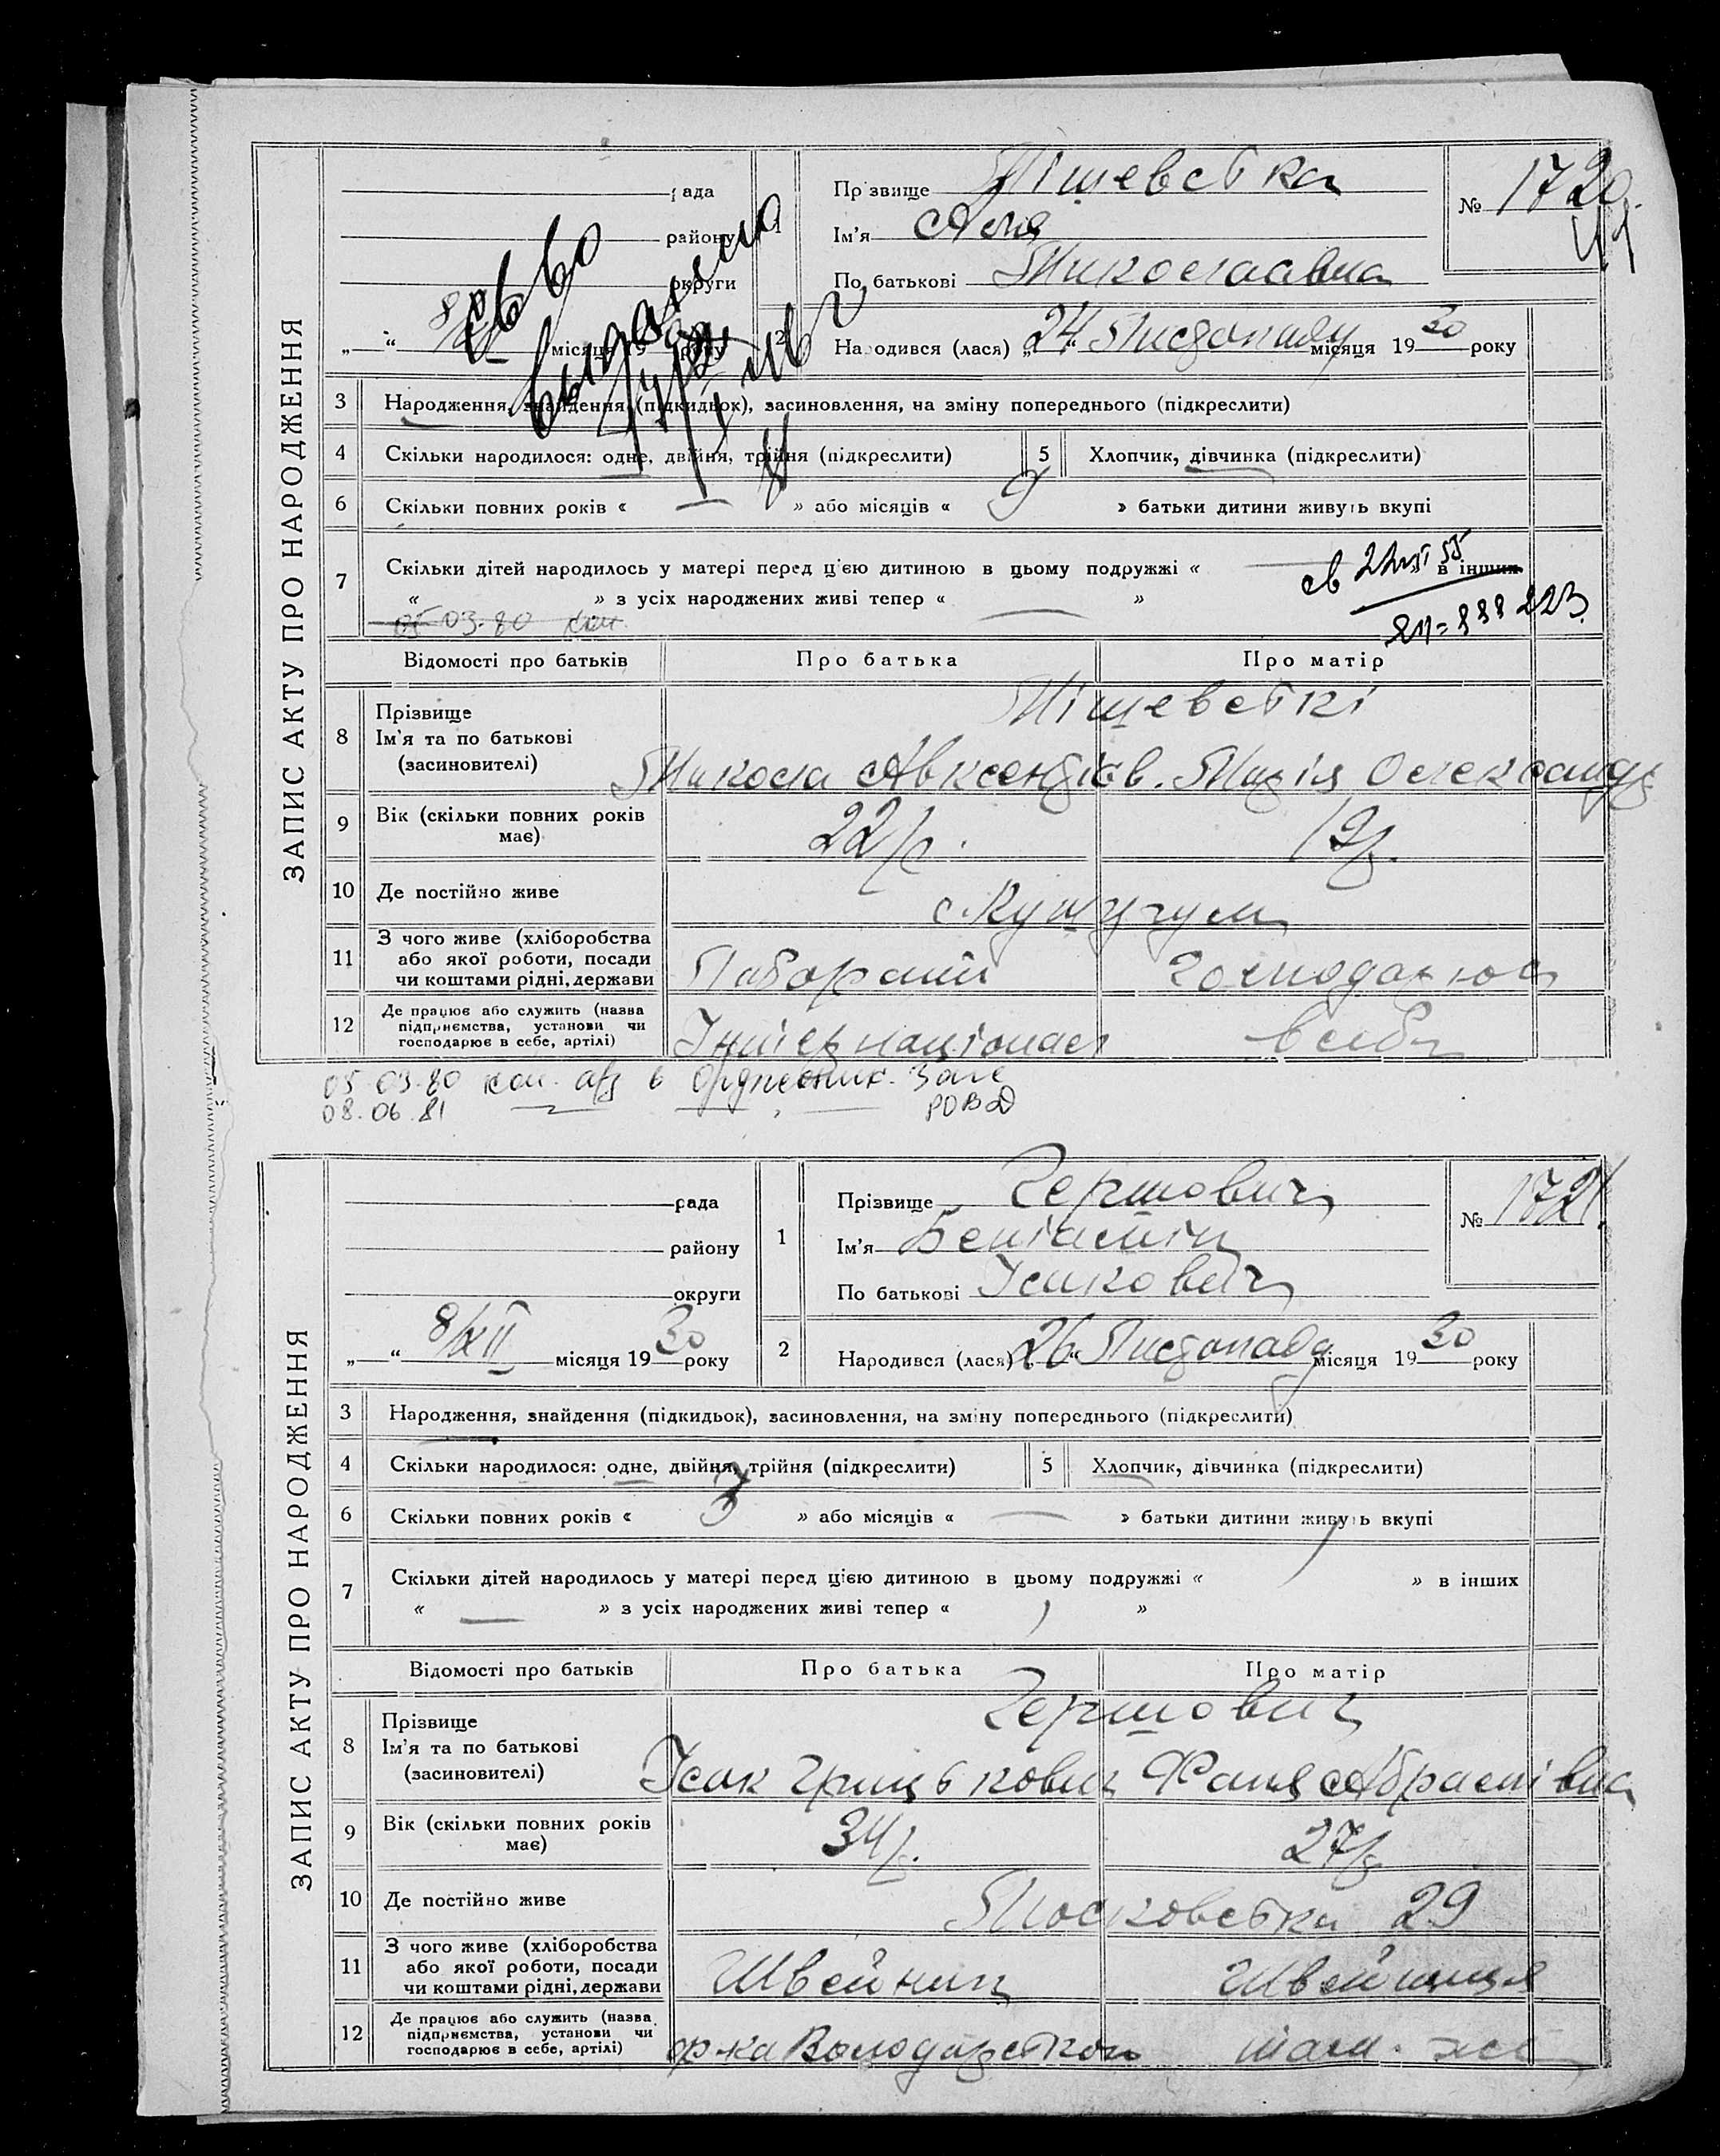 ЗАПИС АКТУ ПРО НАРОДЖЕННЯ
рада
району
округи
„ “ 8/XII місяця 1930 року
св во
1 Прізвище Тішевська
Ім'я Аля
По батькові Миколаевна
№ 1720.
2 Народився (лася) „24“ Листопаду місяця 1930 року
3 Народження, знайдення (підкидьок), засиновлення, на зміну попереднього (підкреслити)
4 Скільки народилося: одне, двійня, трійня (підкреслити)
5 Хлопчик, дівчинка (підкреслити)
6 Скільки повних років « — » або місяців « 9 » батьки дитини живуть вкупі
7 Скільки дітей народилось у матері перед цією дитиною в цьому подружжі « — » в інших
« » з усіх народжених живі тепер « — »
05 03.80
Відомості про батьків Про батька Про матір
8 Прізвище
Ім'я та по батькові
(засиновителі)
Тішевські
Микола Авксентіїв. Марія Олександр
9 Вік (скільки повних років має) 22/р. 19р.
10 Де постійно живе с. Кушугум
11 З чого живе (хліборобства або якої роботи, посади чи коштами рідні, держави
Лаборант Господарює
12 Де працює або служить (назва підприємства, установи чи господарює в себе, артілі)
Інтернаціонал в себе
05-03-80 коп. а/з в Орджоник. Загс
08.06.81 — — РОВД
ЗАПИС АКТУ ПРО НАРОДЖЕННЯ
рада
району
округи
„ “ 8/XII місяця 1930 року
1 Прізвище Гершович
Ім'я Беніамін
По батькові Ісакович
№ 1721.
2 Народився (лася) „26“ Листопаду місяця 1930 року
3 Народження, знайдення (підкидьок), засиновлення, на зміну попереднього (підкреслити)
4 Скільки народилося: одне, двійня, трійня (підкреслити)
5 Хлопчик, дівчинка (підкреслити)
6 Скільки повних років « 3 » або місяців « — » батьки дитини живуть вкупі
7 Скільки дітей народилось у матері перед цією дитиною в цьому подружжі « 1 » в інших
« — » з усіх народжених живі тепер « 1 »
Відомості про батьків Про батька Про матір
8 Прізвище
Ім'я та по батькові
(засиновителі)
Гершович
Ісак Грицькович Фаня Абрамівна
9 Вік (скільки повних років має) 34/р. 27/р
10 Де постійно живе Московська 29
11 З чого живе (хліборобства або якої роботи, посади чи коштами рідні, держави
Швейник Швейниця
12 Де працює або служить (назва підприємства, установи чи господарює в себе, артілі)
ф-ка Володарского там. же